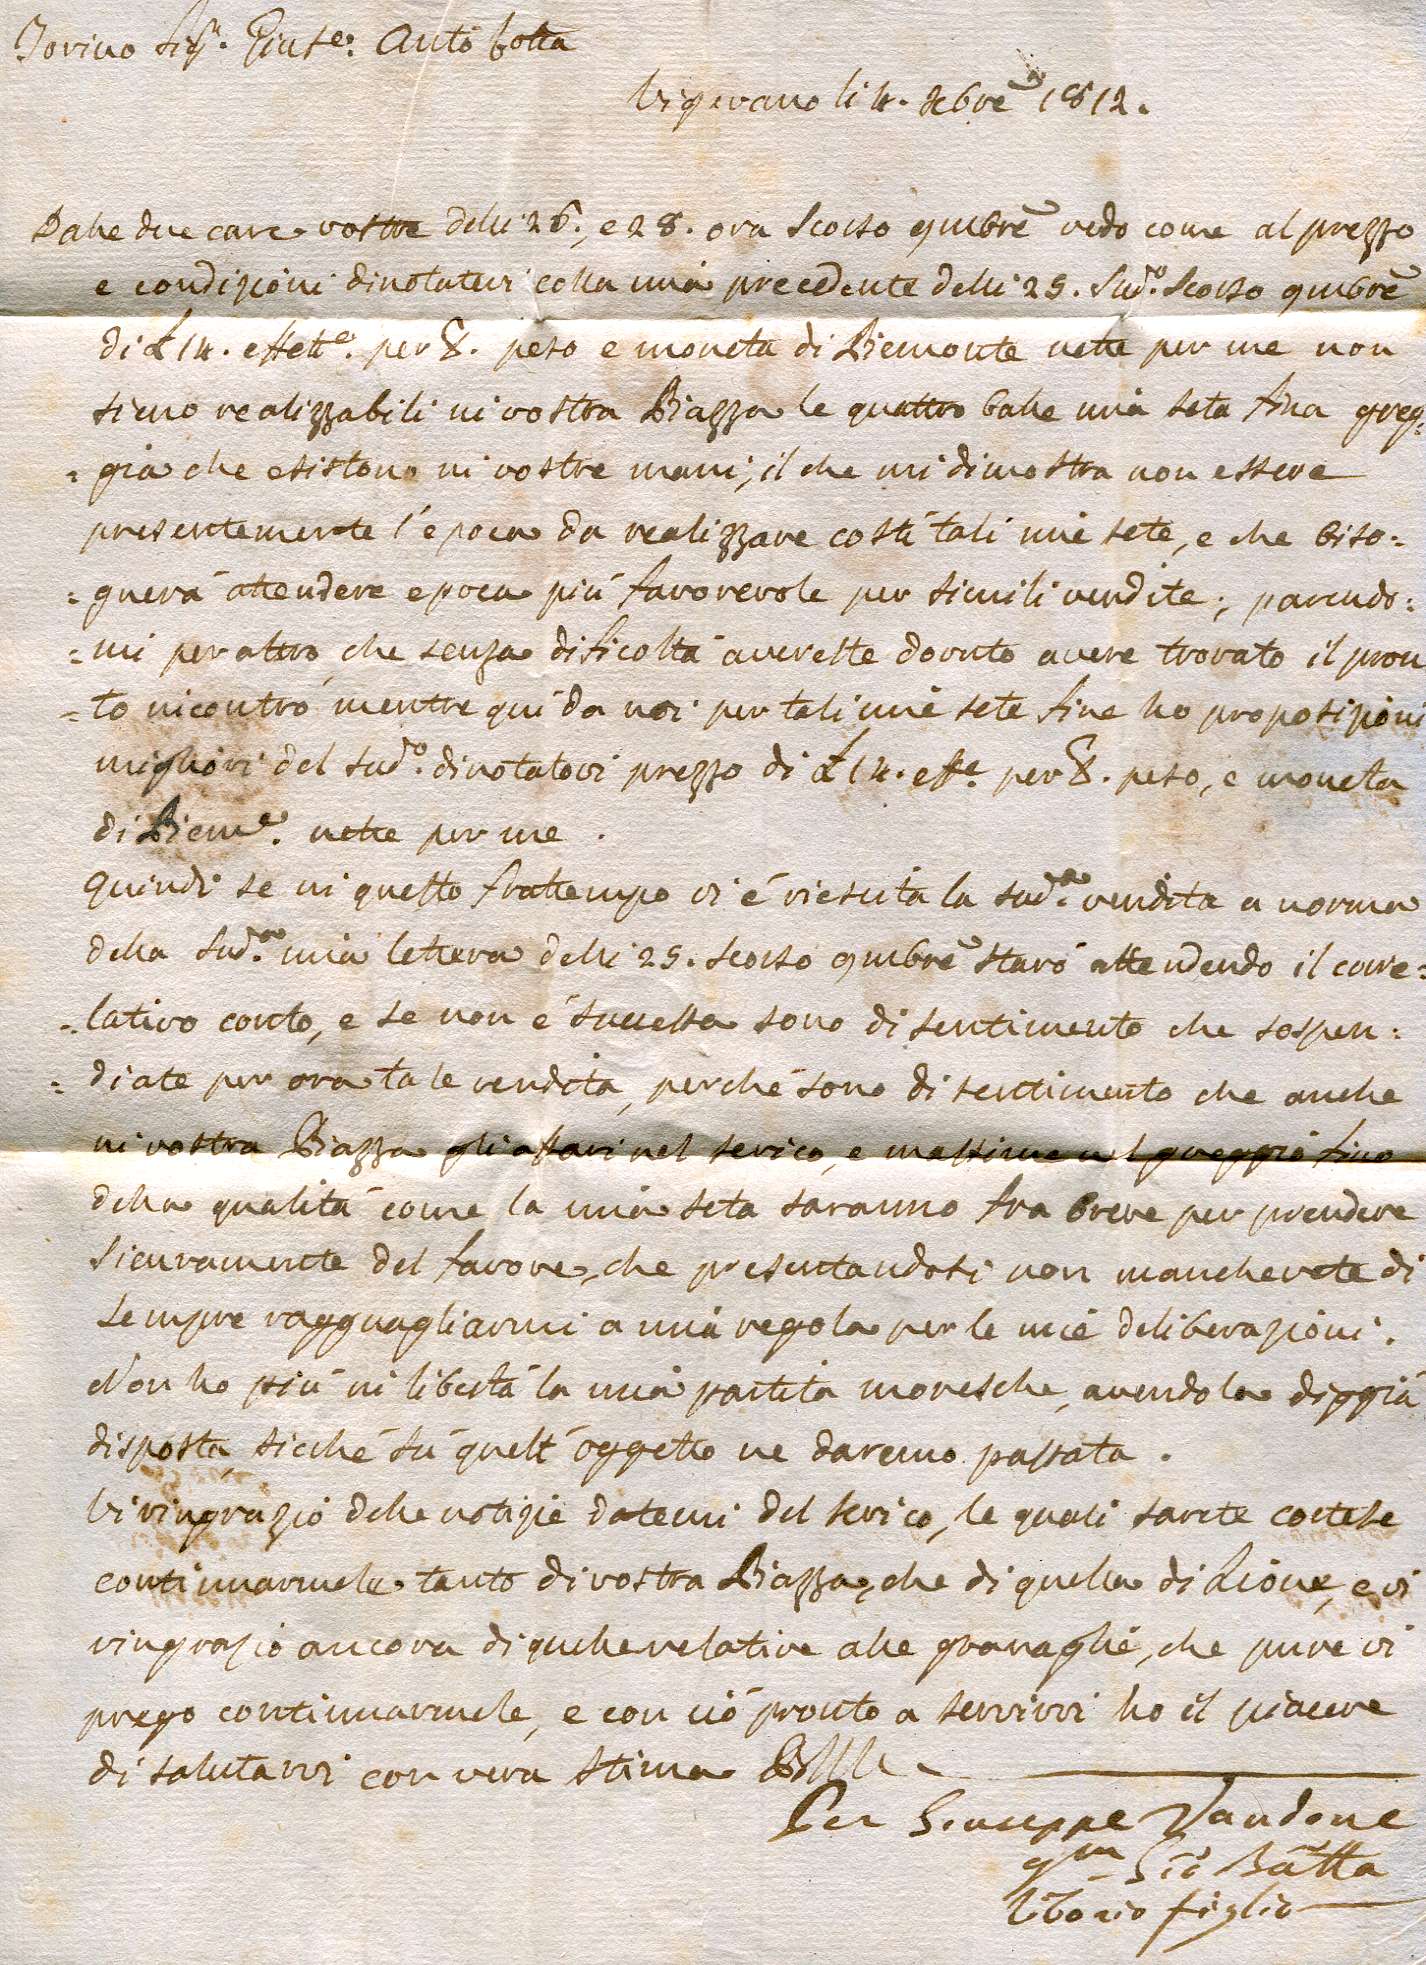 Torino Sig.r Gius.e Antō botta
Vigevano li 4. Xbrē 1812.
Dalle due care vostre delli 26., e 28. ora scorso 9mbrē vedo come al prezzo
e condizioni dinotatevi colla mia precedente delli 25. sud.o scorso 9mbrē
di £ 14. effett.e per ℔. peso e moneta di Piemonte nette per me non
sieno realizzabili in vostra Piazza le quattro balle mia seta fina greg=
=gia che esistono in vostre mani, il che mi dimostra non essere
presentemente l'epoca da realizzare costì tali mie sete, e che biso=
=gnerà attendere epoca più favorevole per simili vendite; parendo=
=mi per altro, che senza dificoltà avereste dovuto avere trovato il pron
=to incontro, mentre quì da noi per tali mie sete fine ho proposizioni
migliori del sud.o dinotatovi prezzo di £ 14. eff.e per ℔. peso, e moneta
di Piem.e nette per me.
Quindi se in questo frattempo vi é riescita la sud.a vendita a norma
della sud.a mia lettera delli 25. scorso 9mbrē starò attendendo il corre=
=lativo conto, e se non é successa sono di sentimento che sospen=
=diate per ora tale vendita, perché sono di sentimento che anche
in vostra Piazza gli affari nel serico, e massime nel greggio fino
della qualità come la mia seta saranno fra breve per prendere
sicuramente del favore, che presentandosi non mancherete di
sempre ragguagliarmi a mia regola per le mie deliberazioni.
Non ho più in libertà la mia partita moresche, avendola diggià
disposta, sicché sù quell'oggetto ne daremo passata.
Vi ringrazio delle notizie datemi del serico, le quali sarete cortese
continuarmele tanto di vostra Piazza, che di quella di Lione, e vi
ringrazio ancora di quelle relative alle granaglie, che pure vi
prego continuarmele, e con ciò pronto a servirvi ho il piacere
di salutarvi con vera stima
Per Giuseppe Vandone
qm Gio Batta
Vitorio figlio